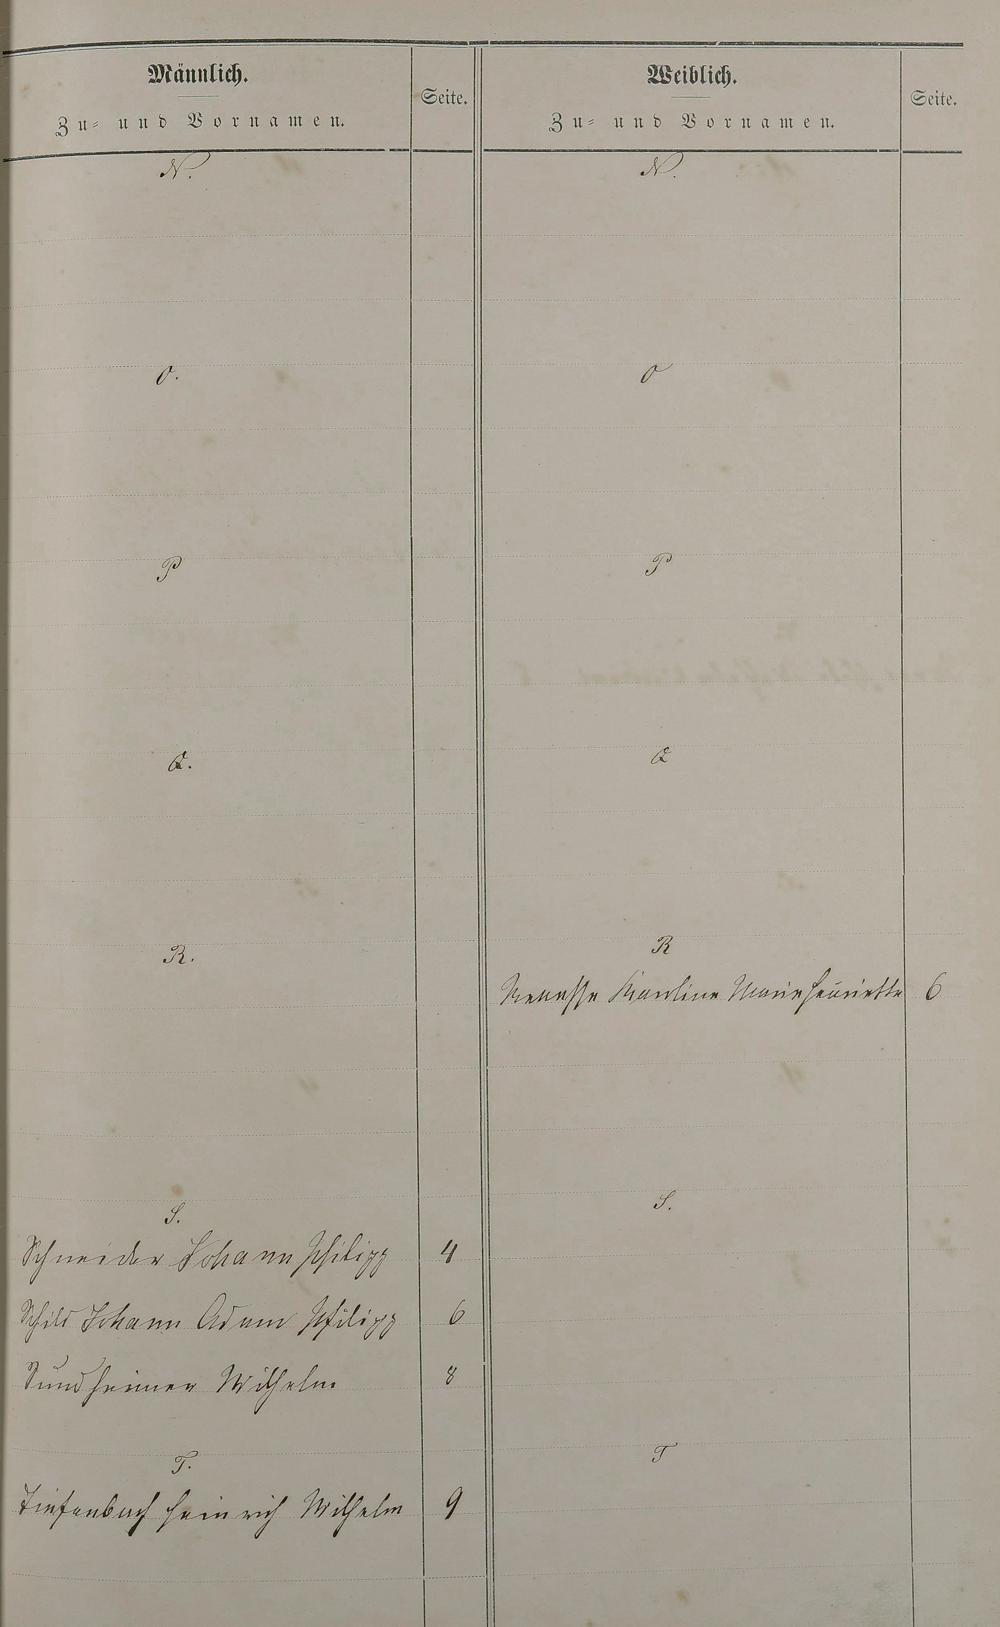 Männlich.
Zu- und Vornamen.
Seite.
Weiblich.
Zu- und Vornamen.
Seite.
N.
N.
O.
O
P
P
Q.
Q
R.
R
Karoline Marie Henriette 6
S.
S.
Schneider Johann Philipp 4
Schild Johann Adam Philipp 6
Sundheimer Wilhelm 8
T.
T
Tiefenbach Heinrich Wilhelm 9